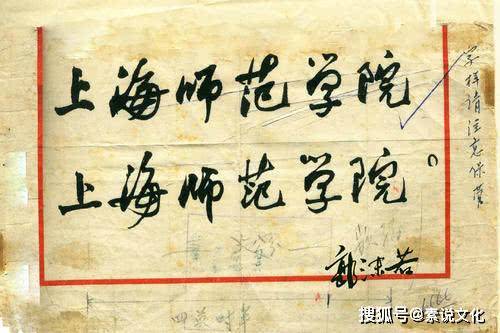 上海师范学院
上海师范学院。
郭沫若
字样请注意保管
四英吋半
搜狐号@素说文化